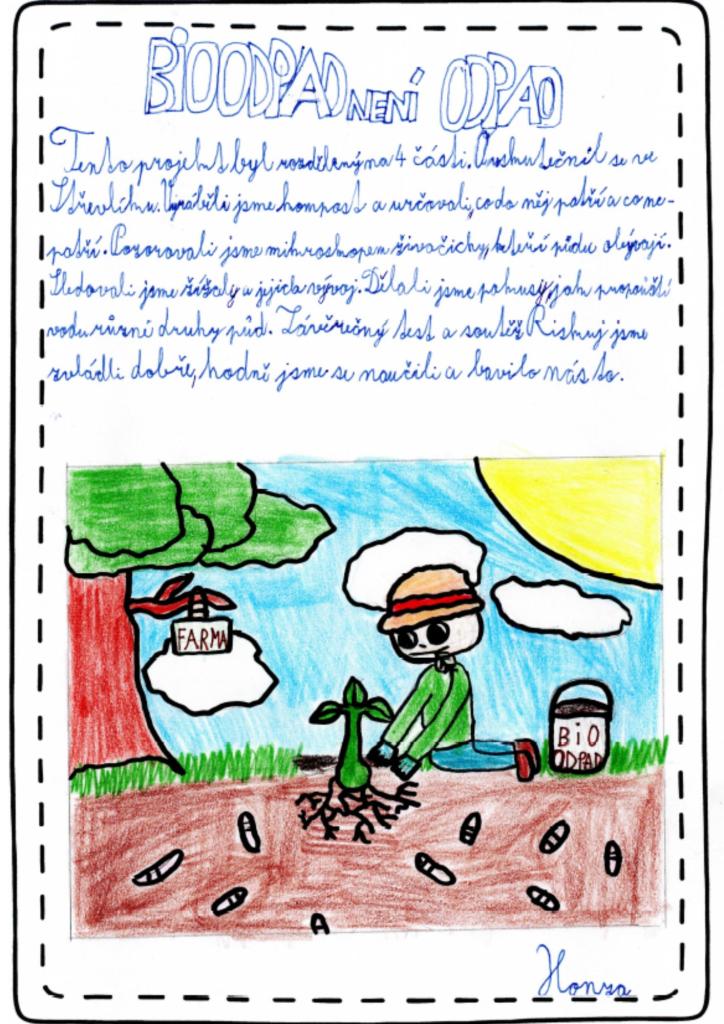 BIOODPAD NENÍ ODPAD
Tento projekt byl rozdělený na 4 části. Uskutečnil se ve
Střevlíku. Vyráběli jsme kompost a určovali, co do něj patří a co ne-
patří. Pozorovali jsme mikroskopem živočichy, kteří půdu obývají.
Sledovali jsme žížaly a jejich vývoj. Dělali jsme pokusy, jak propouští
vodu různé druhy půd. Závěrečný test a soutěž Riskuj jsme
zvládli dobře, hodně jsme se naučili a bavilo nás to.
FARMA
BiO
ODPAD
A
Honza